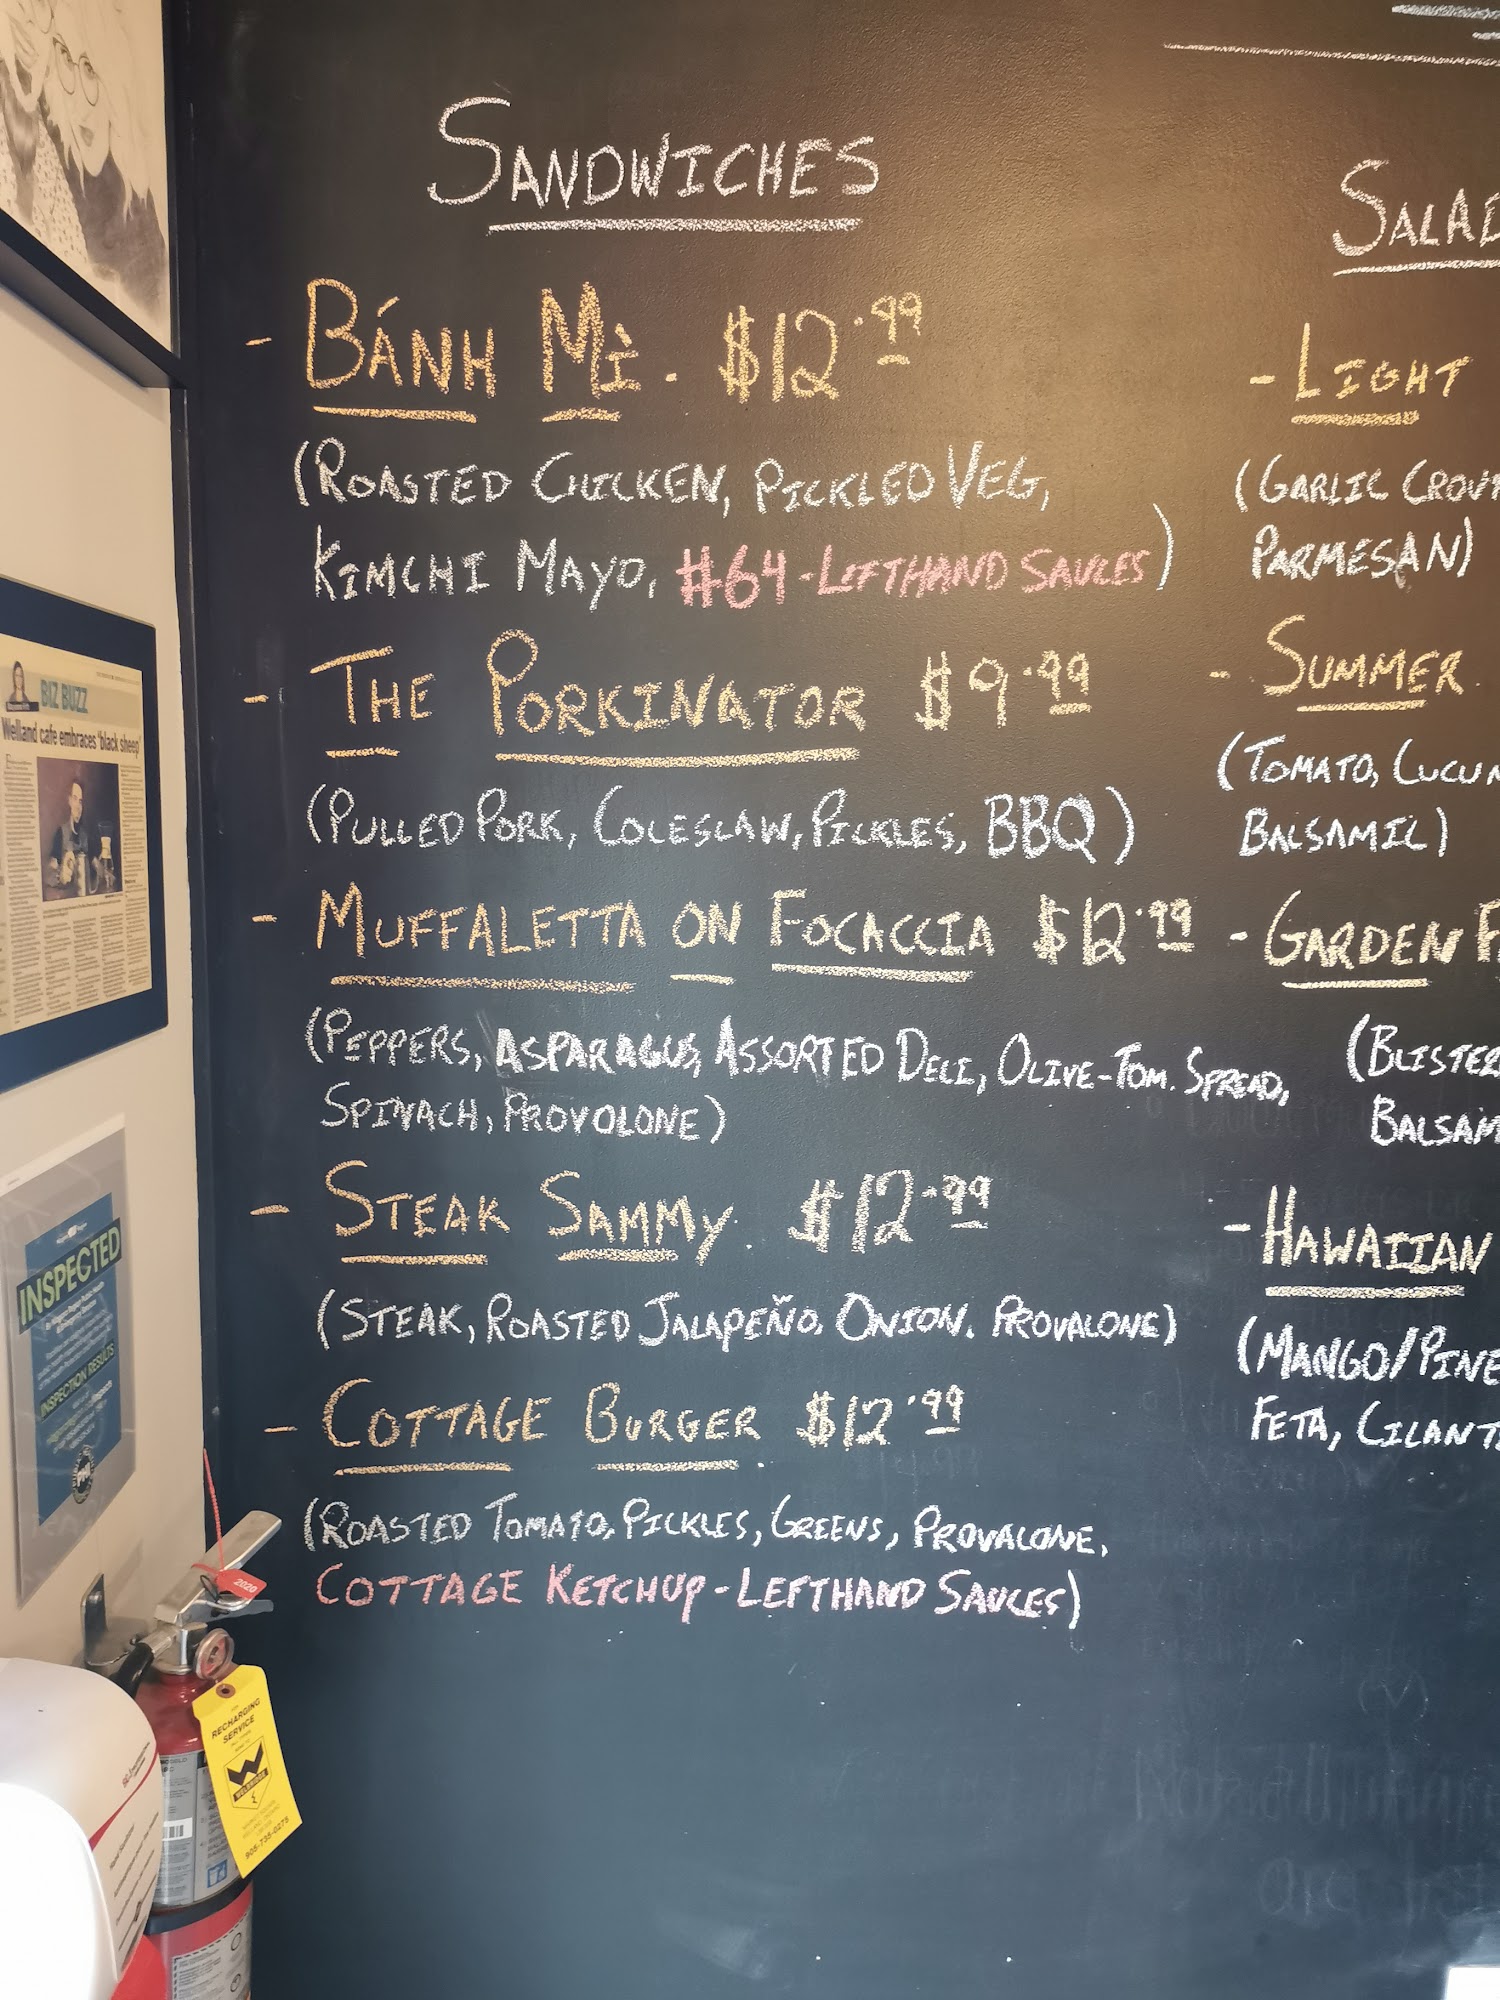 SANDWICHES
- BÁNH MÌ. $12.99
(ROASTED CHICKEN, PICKLED VEG,
KIMCHI MAYO, #64-LEFTHAND SAUCES)
- THE PORKINATOR $9.99
(PULLED PORK, COLESLAW, PICKLES, BBQ)
- MUFFALETTA ON FOCACCIA $12.99
(PEPPERS, ASPARAGUS, ASSORTED DELI, OLIVE-TOM. SPREAD,
SPINACH, PROVOLONE)
- STEAK SAMMY. $12.99
(STEAK, ROASTED JALAPEÑO, ONION, PROVALONE)
- COTTAGE BURGER $12.99
(ROASTED TOMATO, PICKLES, GREENS, PROVALONE,
COTTAGE KETCHUP-LEFTHAND SAUCES)
SALAD
- LIGHT
(GARLIC CROU
PARMESAN)
- SUMMER.
(TOMATO, CUCUM
BALSAMIC)
- GARDEN F
(BLISTER
BALSAM
- HAWAIIAN
(MANGO/PINE
FETA, CILANT
BIZ BUZZ
Welland cafe embraces 'black sheep'
INSPECTED
INSPECTION RESULTS
2020
RECHARGING
SERVICE
W
905-735-0275